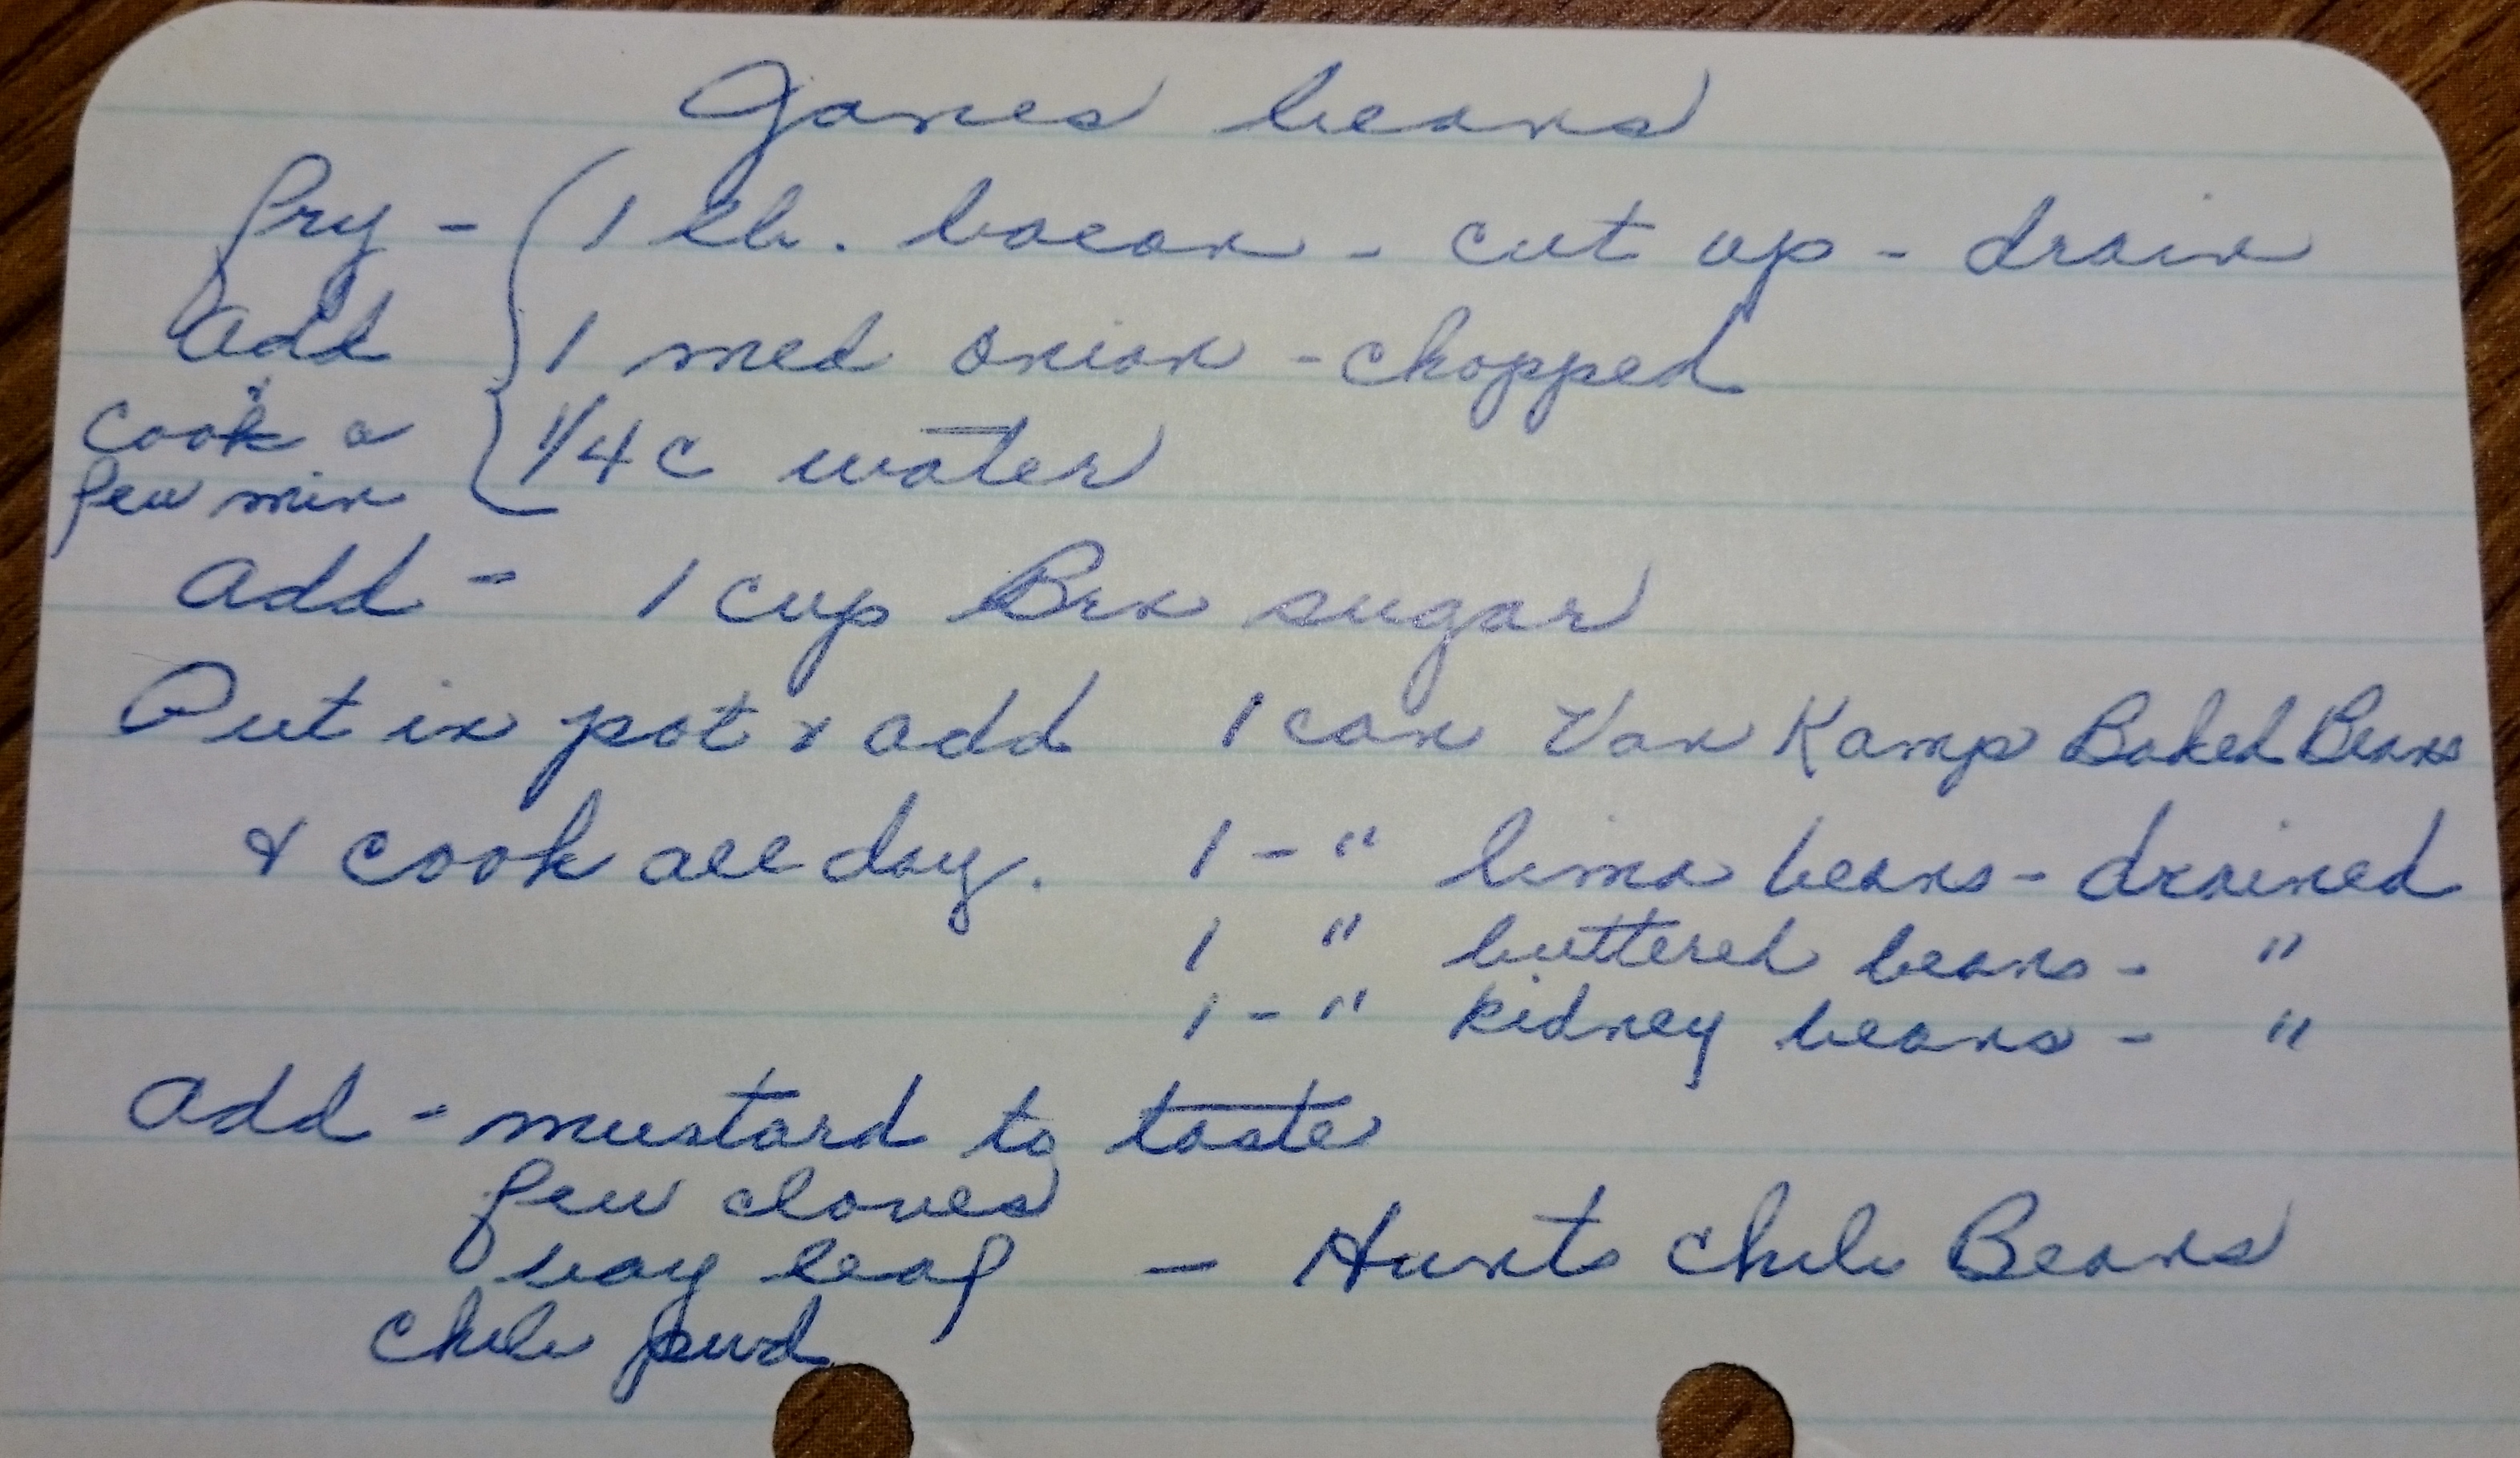 Janes beans
Fry - 1 lb. bacon - cut up - drain
add 1 med onion - chopped
cook a 1/4 c water
few min
add - 1 cup Brn sugar
Put in pot & add 1 can Van Kamp Baked Beans
& cook all day. 1 - " lima beans - drained
1 " buttered beans - "
1 - " kidney beans - "
add - mustard to taste
few cloves
bay leaf - Hunts chili Beans
chili pwd